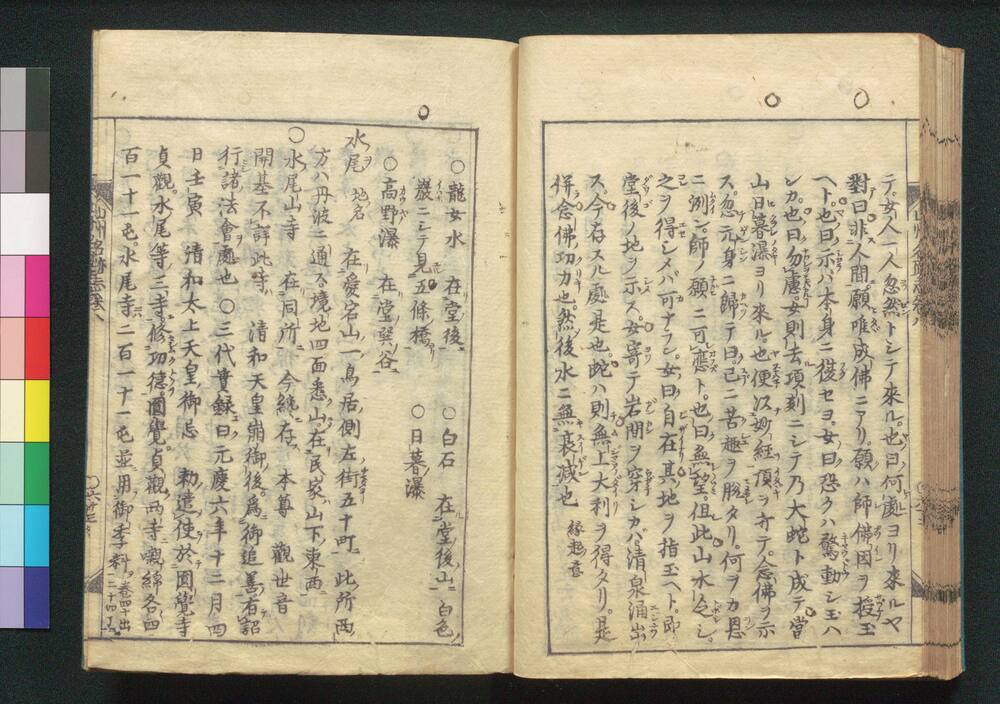 テ女人一人忽然トシテ來ル也曰何處ヨリ來ルヤ
對曰非人間願唯成佛ニアリ願ハ師佛因ヲ授玉
ヘト也曰示ハ本身ニ復セヨ女曰恐クハ驚動シ玉ハ
ンカ也曰勿慮女則去頃刻ニシテ乃大蛇ト成テ當
山日暮瀑ヨリ來ル也便以妙經頂ヲ摩テ念佛ヲ示
ス忽元身ニ歸テ曰已ニ苦趣ヲ脱タリ何ヲカ恩
ニ酬師ノ願ニ可應ト也曰無望但此山水乏シ
之ヲ得シメバ可ナラン女曰自在其地ヲ指玉ヘト即
堂後ノ地ヲ示ス女寄テ岩間ヲ穿シカバ清泉涌出
ス今存スル處是也蛇ハ則無上大利ヲ得タリ是
併念佛功力也然後水ニ無衰減也 縁起意
○龍女水 在堂後 ○白石 在堂後山白色
巖ニシテ見五條橋
○高野瀑 在堂巽谷 ○日暮瀑
水尾 地名 在愛宕山一鳥居側左街五十町 此所西
方ハ丹波ニ通ル境地四面悉山在民家山下東西
○水尾山寺 在同所 今纔存 本尊 觀世音
開基不詳此寺 清和天皇崩御後爲御追善有詔
行諸法會處也 ○三代實録曰元慶六年十二月四
日壬寅 清和太上天皇御忌 勅遣使於圓覺寺
貞觀水尾等三寺修功德圓覺貞觀兩寺 綿各四
百一十一屯水尾寺二百一十一屯並用御季料 卷四十出
二十四丁
山州名跡志卷八